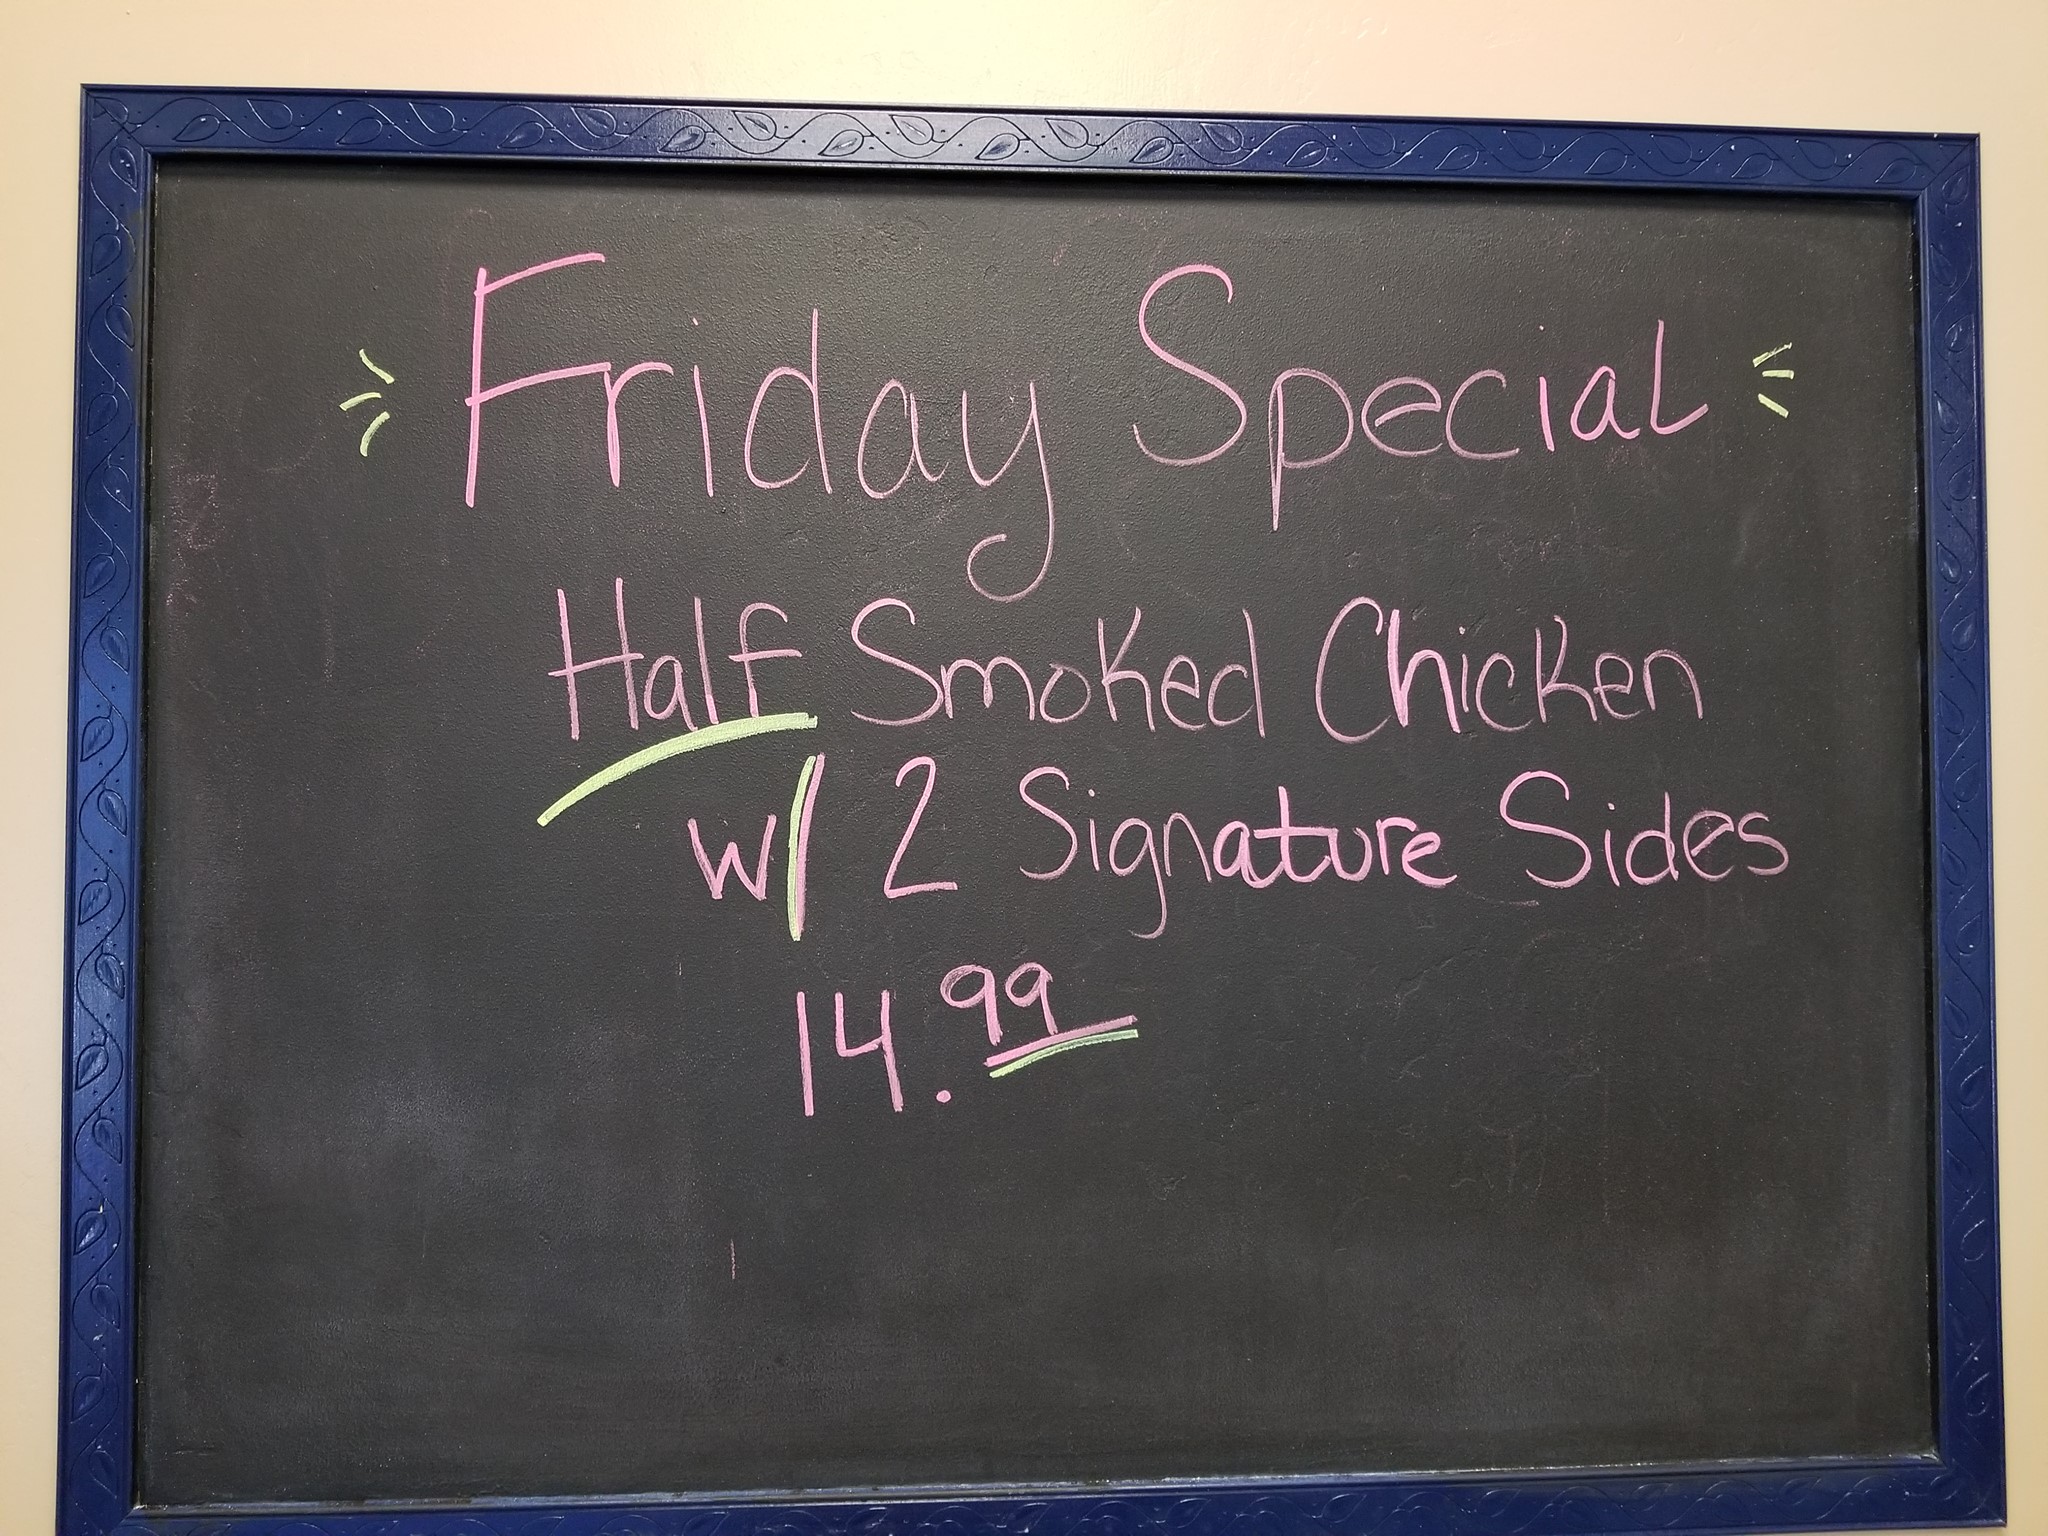 Friday Special
Half Smoked Chicken
w/ 2 Signature Sides
14.99